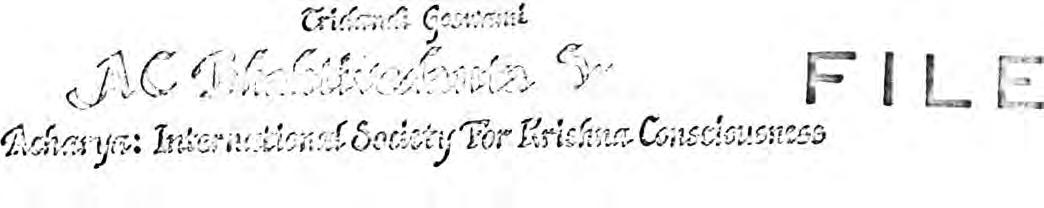 Tridandi Goswami
AC Bhaktivedanta FILE
Acharya: International Society For Krishna Consciousness